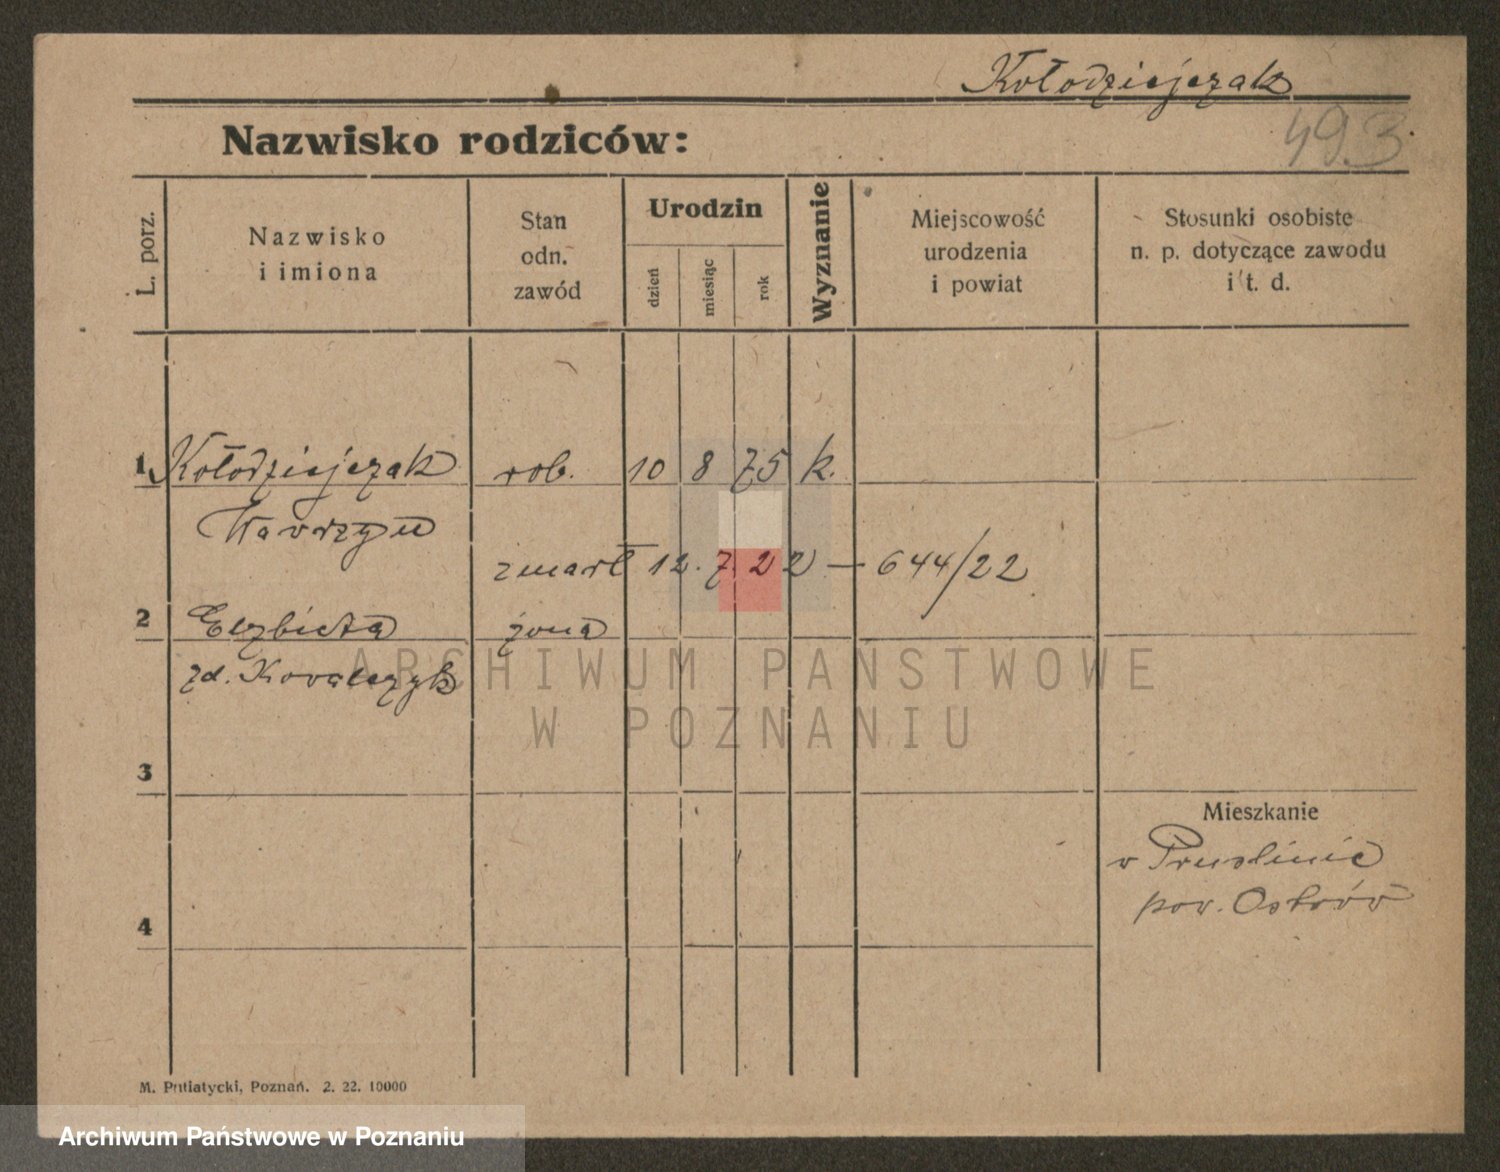 Kołodziejczak
Nazwisko rodziców:
493
L. porz.
Nazwisko
i imiona
Stan
odn.
zawód
Urodzin
dzień
miesiąc
rok
Wyznanie
Miejscowość
urodzenia
i powiat
Stosunki osobiste
n. p. dotyczące zawodu
i t. d.
1 Kołodziejczak rob. 10 8 75 k.
Wawrzyn
zmarł 12. 7. 22 — 644/22
2 Elżbieta żona
zd. Kowalczyk
ARCHIWUM PAŃSTWOWE
W POZNANIU
3
Mieszkanie
w Pruślinie
pow. Ostrów
4
M. Putiatycki, Poznań. 2. 22. 10000
Archiwum Państwowe w Poznaniu